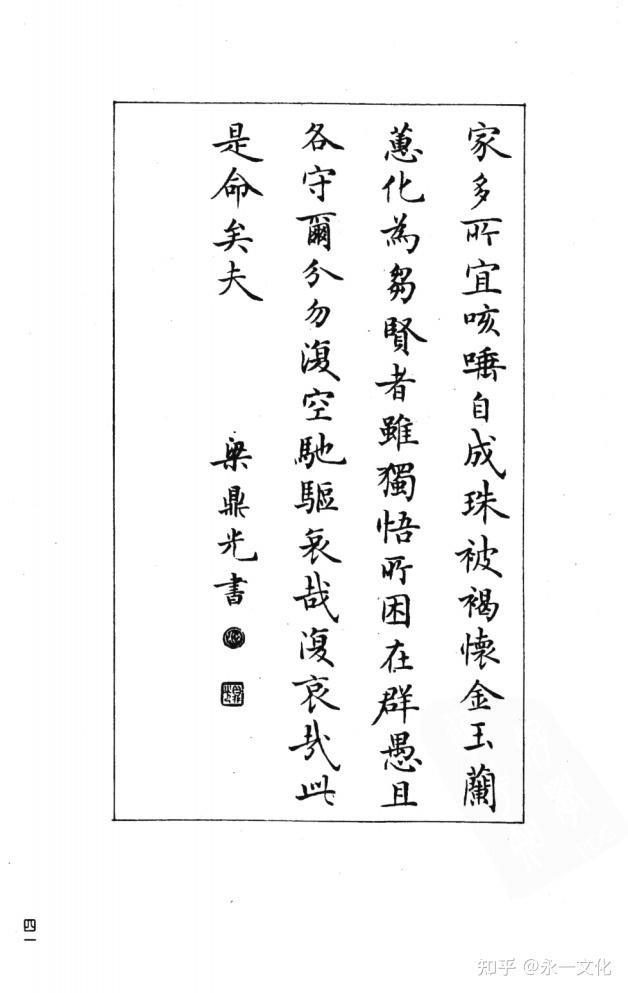 家多所宜咳唾自成珠被褐懷金玉蘭
蕙化為芻賢者雖獨悟所困在群愚且
各守爾分勿復空馳驅哀哉復哀哉此
是命矣夫 梁鼎光書
四一
知乎 @永一文化